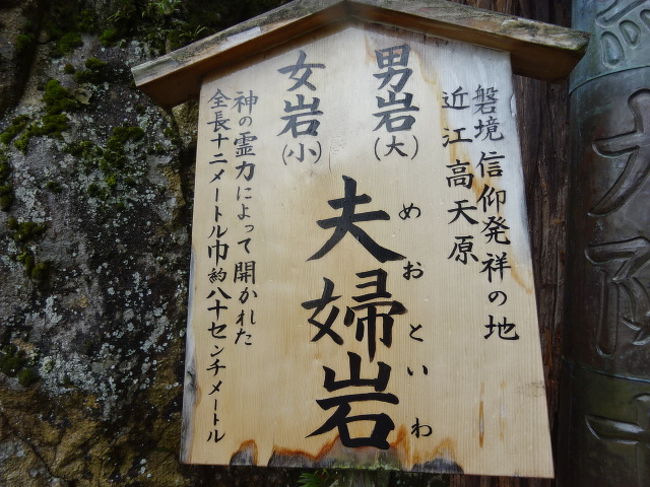 磐境信仰発祥の地
近江高天原
男岩(大)
めおといわ
夫婦岩
女岩(小)
神の霊力によって開かれた
全長十二メートル巾約八十センチメートル